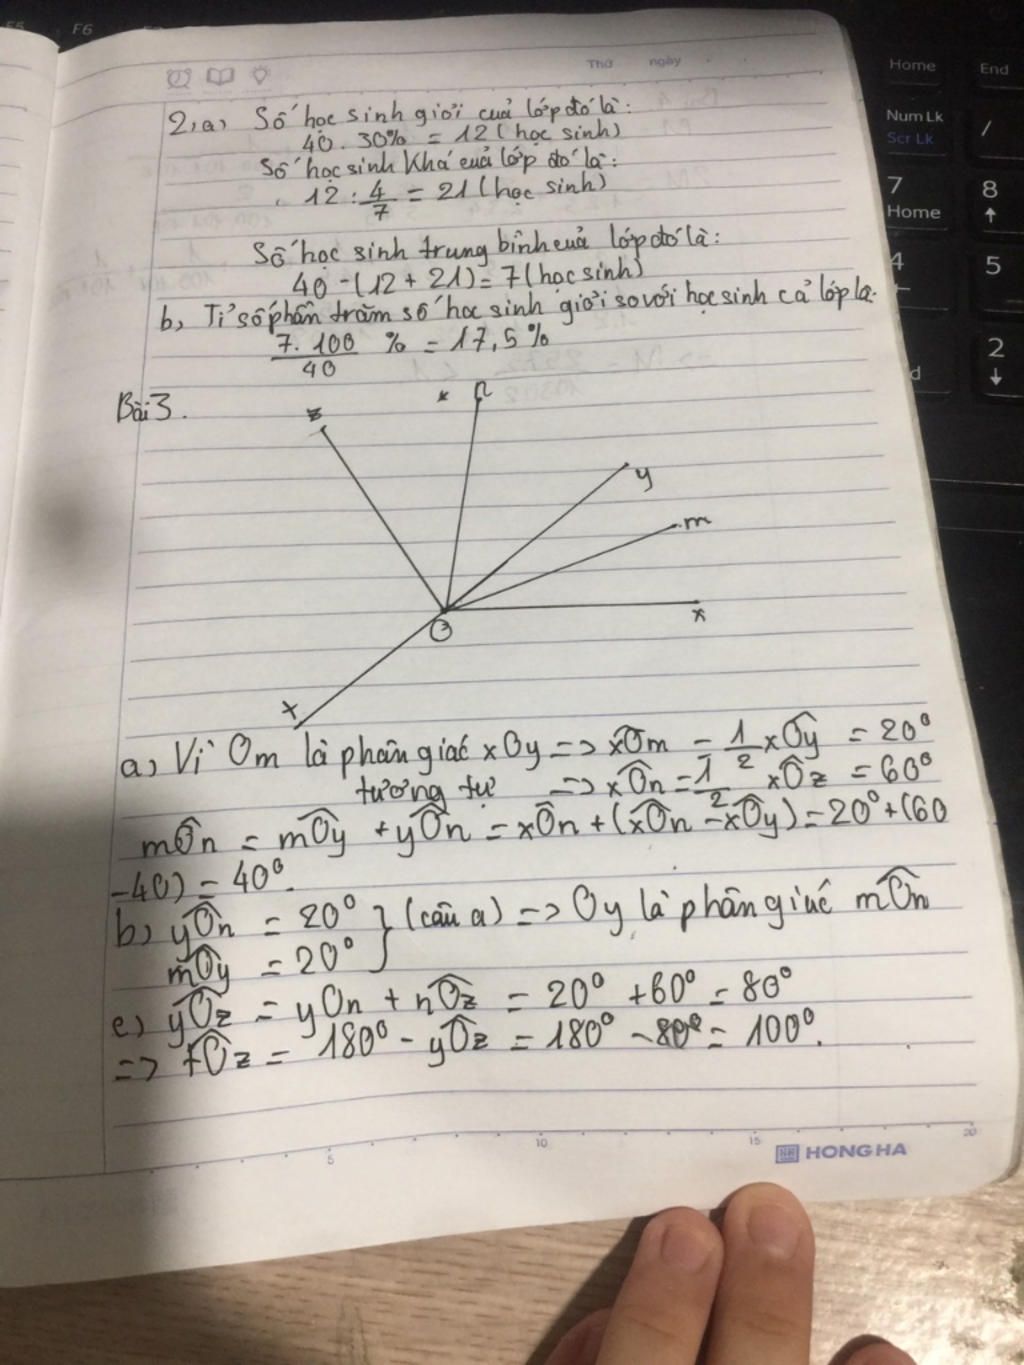 F5 F6
Home End
Num Lk
Scr Lk /
7 8
Home ↑
4 5
2
↓
Thứ ngày
2,a, Số học sinh giỏi cuả lớp đó là:
40 . 30% = 12 (học sinh)
Số học sinh Khá cuả lớp đó là:
12 : 4/7 = 21 (học sinh)
Số học sinh trung bình cuả lớp đó là:
40 - (12 + 21) = 7 (học sinh)
b, Tỉ số phần trăm số học sinh giỏi so với học sinh cả lớp là:
7 . 100/40 % = 17,5 %
Bài 3.
z n
y
m
x
O
t
a, Vì Om là phân giác xOy => xÔm = 1/2 xÔy = 20°
tương tự => xÔn = 1/2 xÔz = 60°
mÔn = mÔy + yÔn = xÔn + (xÔn - xÔy) = 20° + (60
- 40) = 40°.
b, yÔn = 20° } (câu a) => Oy là phân giác mÔn
mÔy = 20°
c) yÔz = yOn + nÔz = 20° + 60° = 80°
=> tÔz = 180° - yÔz = 180° - 80° = 100°.
5 10 15 20
HH HONG HA